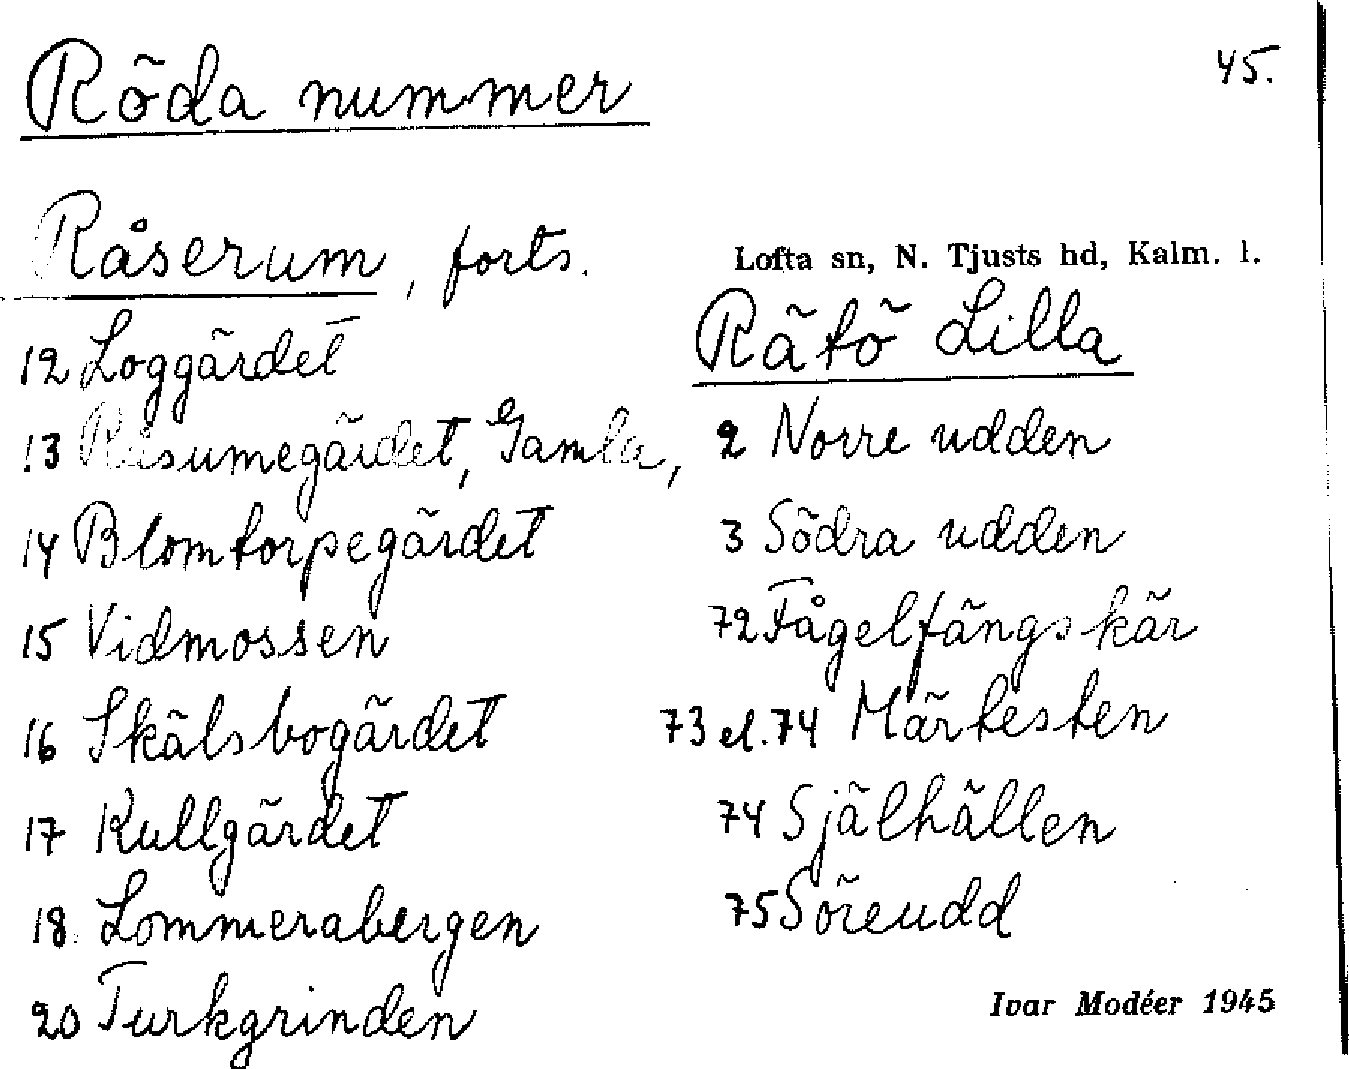 Röda nummer
45.
Råserum, forts.
12 Loggärdet
13 Råsumegärdet, Gamla,
14 Blomtorpegärdet
15 Vidmossen
16 Skälsbogärdet
17 Kullgärdet
18. Lommerabergen
20 Turkgrinden
Lofta sn, N. Tjusts hd, Kalm. l.
Rätö Lilla
2 Norre udden
3 Södra udden
72 Fågelfängskär
73 el. 74 Märtesten
74 Själhällen
75 Söreudd
Ivar Modéer 1945